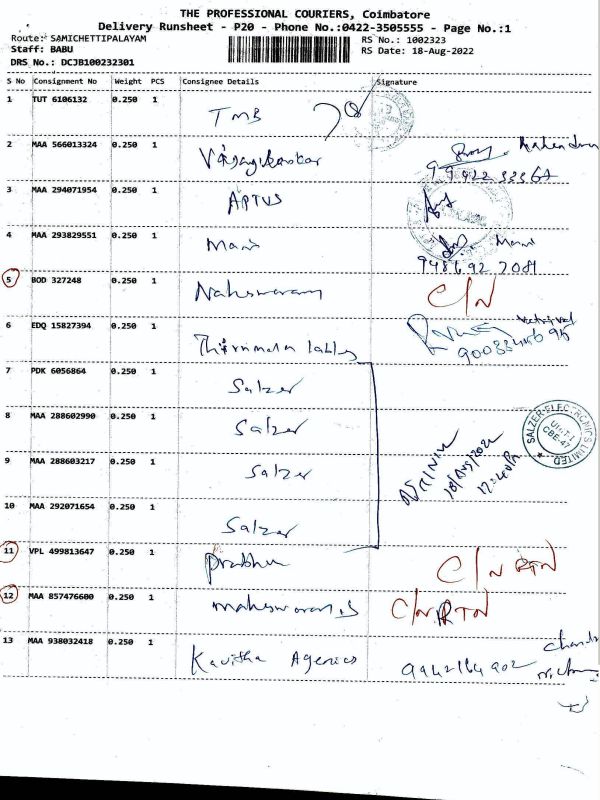 THE PROFESSIONAL COURIERS, Coimbatore
Delivery Runsheet - P20 - Phone No.:0422-3505555 - Page No.:1
Route: SAMICHETTIPALAYAM RS No.: 1002323
Staff: BABU RS Date: 18-Aug-2022
DRS No.: DCJB100232301
S No Consignment No Weight PCS Consignee Details Signature
1 TUT 6106132 0.250 1 TMB
2 MAA 566013324 0.250 1
Mahendran
3 MAA 294071954 0.250 1 APTUS
4 MAA 293829551 0.250 1 Mani Mani
5 BOD 327248 0.250 1 C/N
6 EDQ 15827394 0.250 1
7 PDK 6056864 0.250 1 Salzer
8 MAA 288602990 0.250 1 Salzer
SALZER ELECTRONICS LIMITED
UNIT-1
CBE-47
9 MAA 288603217 0.250 1 Salzer
18/Aug/2022
12:40PM
10 MAA 292071654 0.250 1 Salzer
11 VPL 499813647 0.250 1 Prabhu C/N RTN
12 MAA 857476600 0.250 1 maheswaran.s C/N RTN
13 MAA 938032418 0.250 1 Kavitha Agenics 9942164902